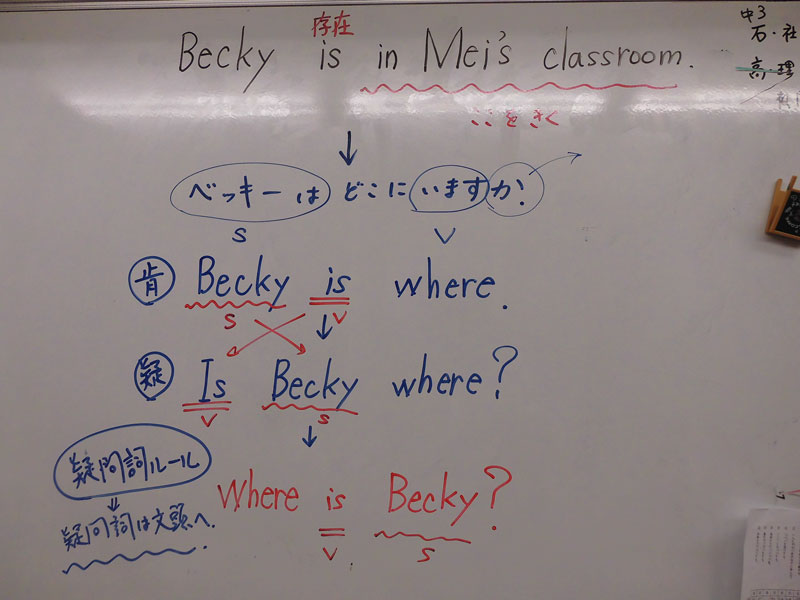 存在
Becky is in Mei's classroom.
ここをきく
ベッキーは どこに いますか?
S V
肯 Becky is where.
S V
疑 Is Becky where?
V S
疑問詞ルール
疑問詞は文頭へ.
Where is Becky?
V S
中3
石・社
高・理